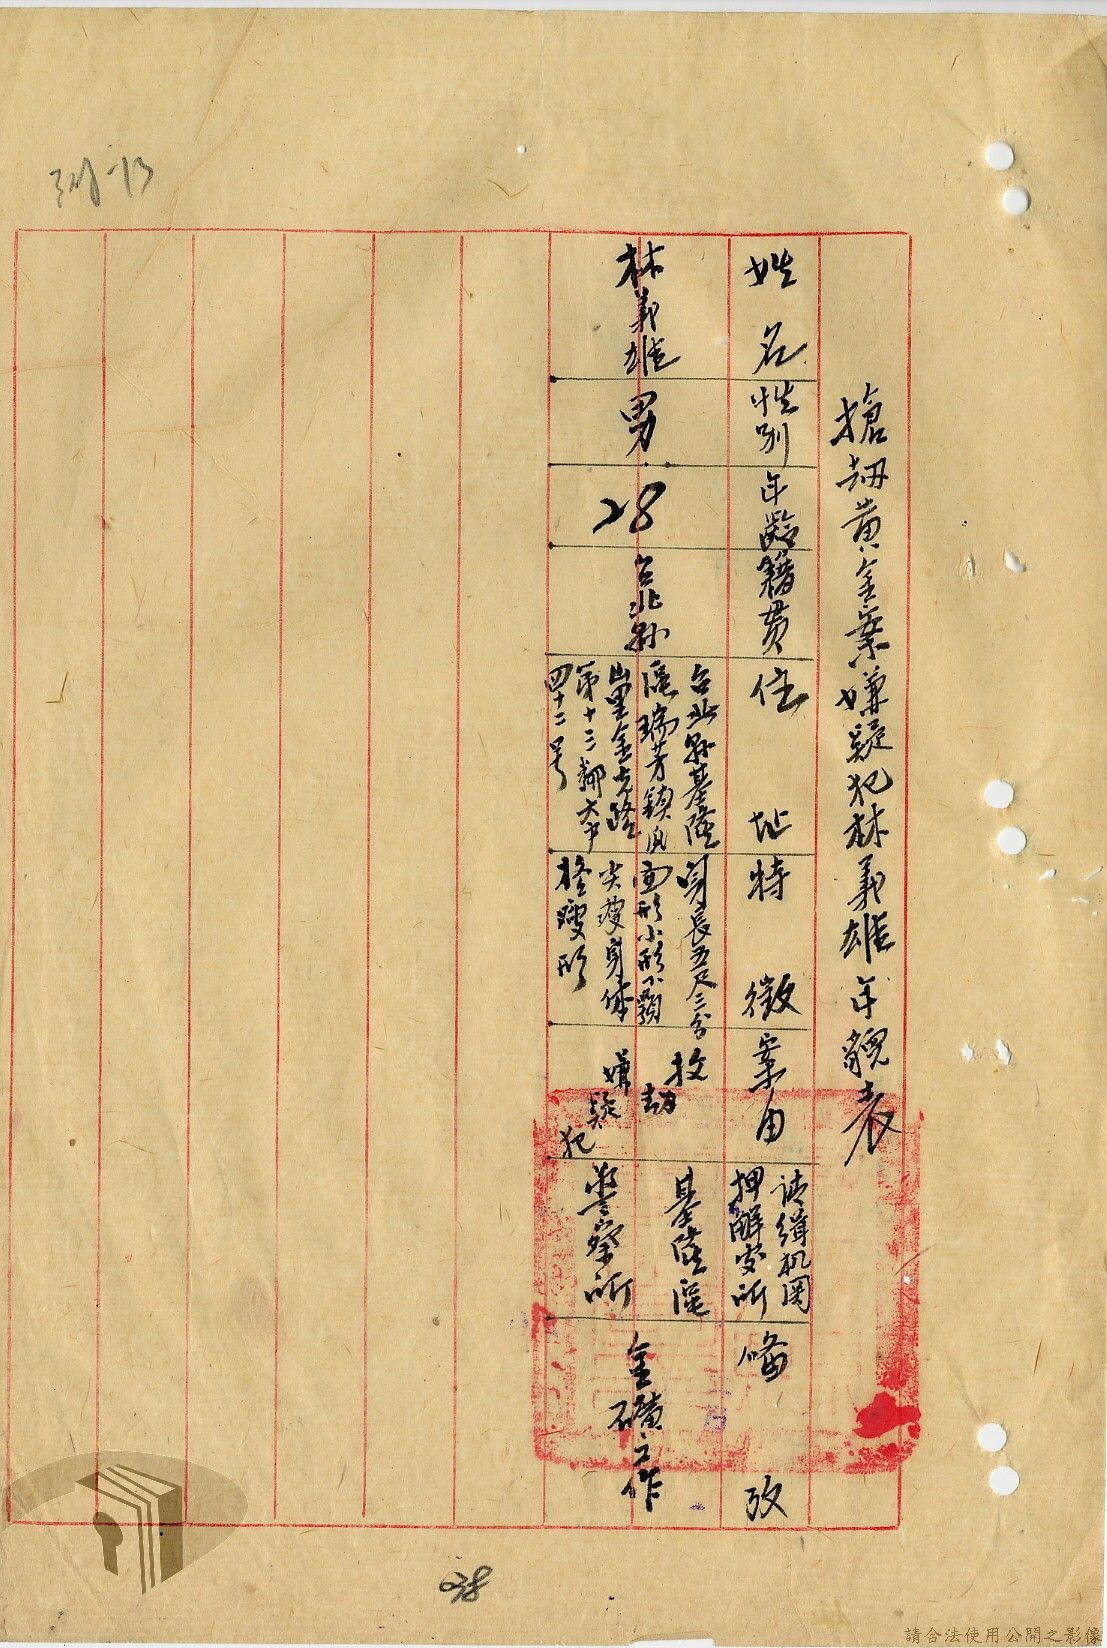 搶刼黄金案嫌疑犯林義雄年貌表
姓名
性別
年齡
籍貫
住址
特徵
案由
請緝机関
押解安所
俻攷
林義雄
男
28
台北縣
台北縣基隆
區瑞芳鎮
山里金
第十三鄰
四十二号
身長五尺三分
面形小形下顎
尖瘦身体
瘦形
刼
嫌疑犯
基隆區
警察所
金礦工作
038
請合法使用公開之影像